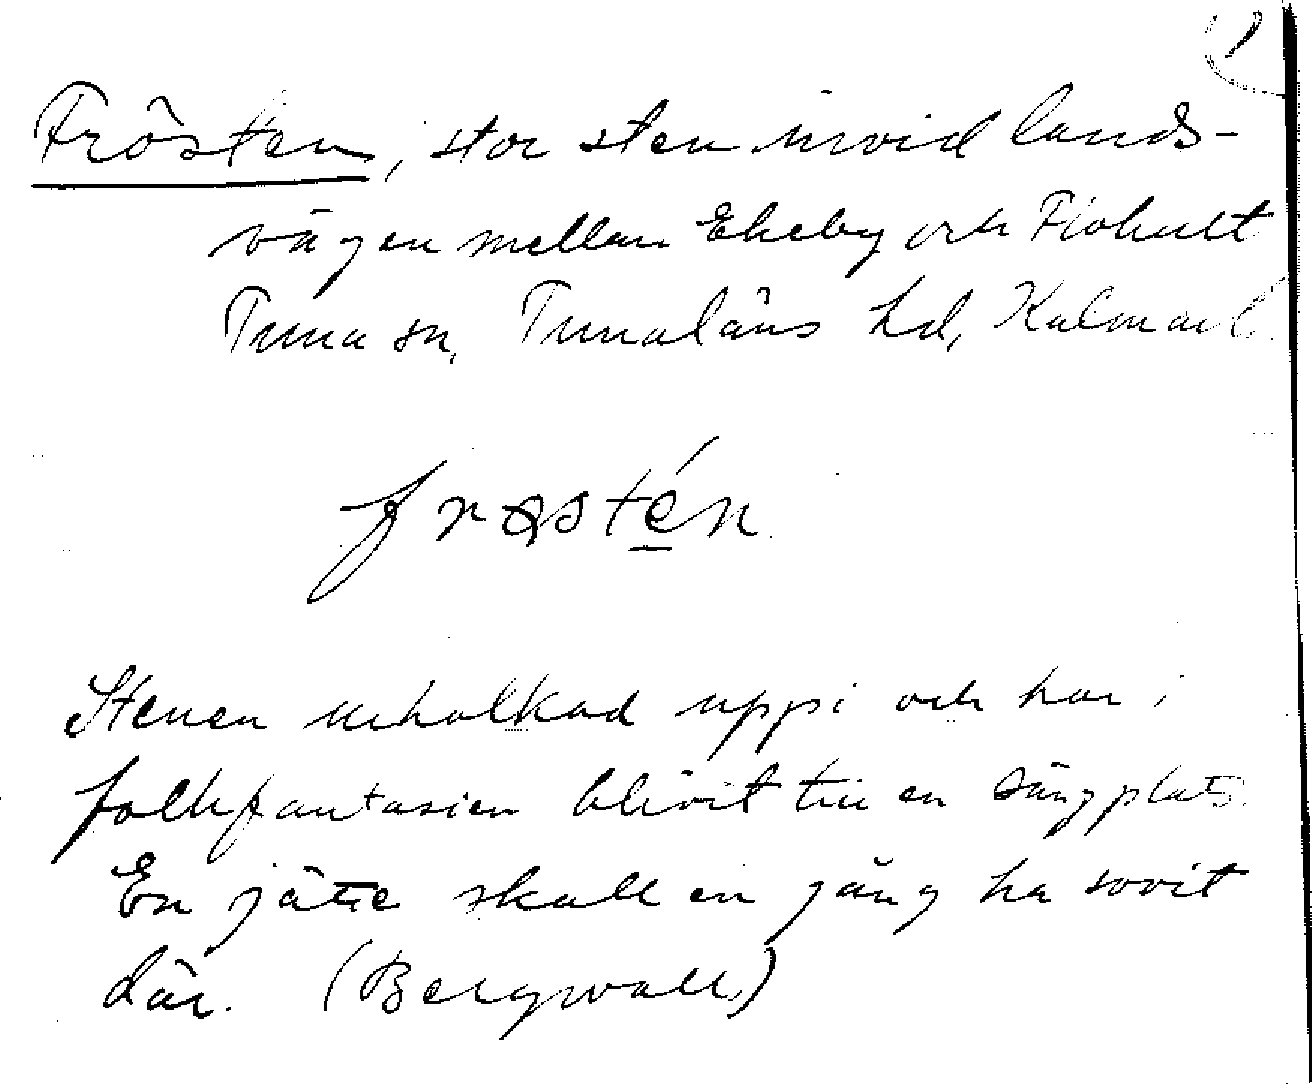 1
Frösten, stor sten invid lands-
vägen mellan Ekeby och Flohult
Tuna sn, Tunaläns hd, Kalmar l.
frøstén
Stenen urholkad uppi och har i
folkfantasien blivit till en sängplats.
En jätte skall en gång ha sovit
där. (Bergwall)